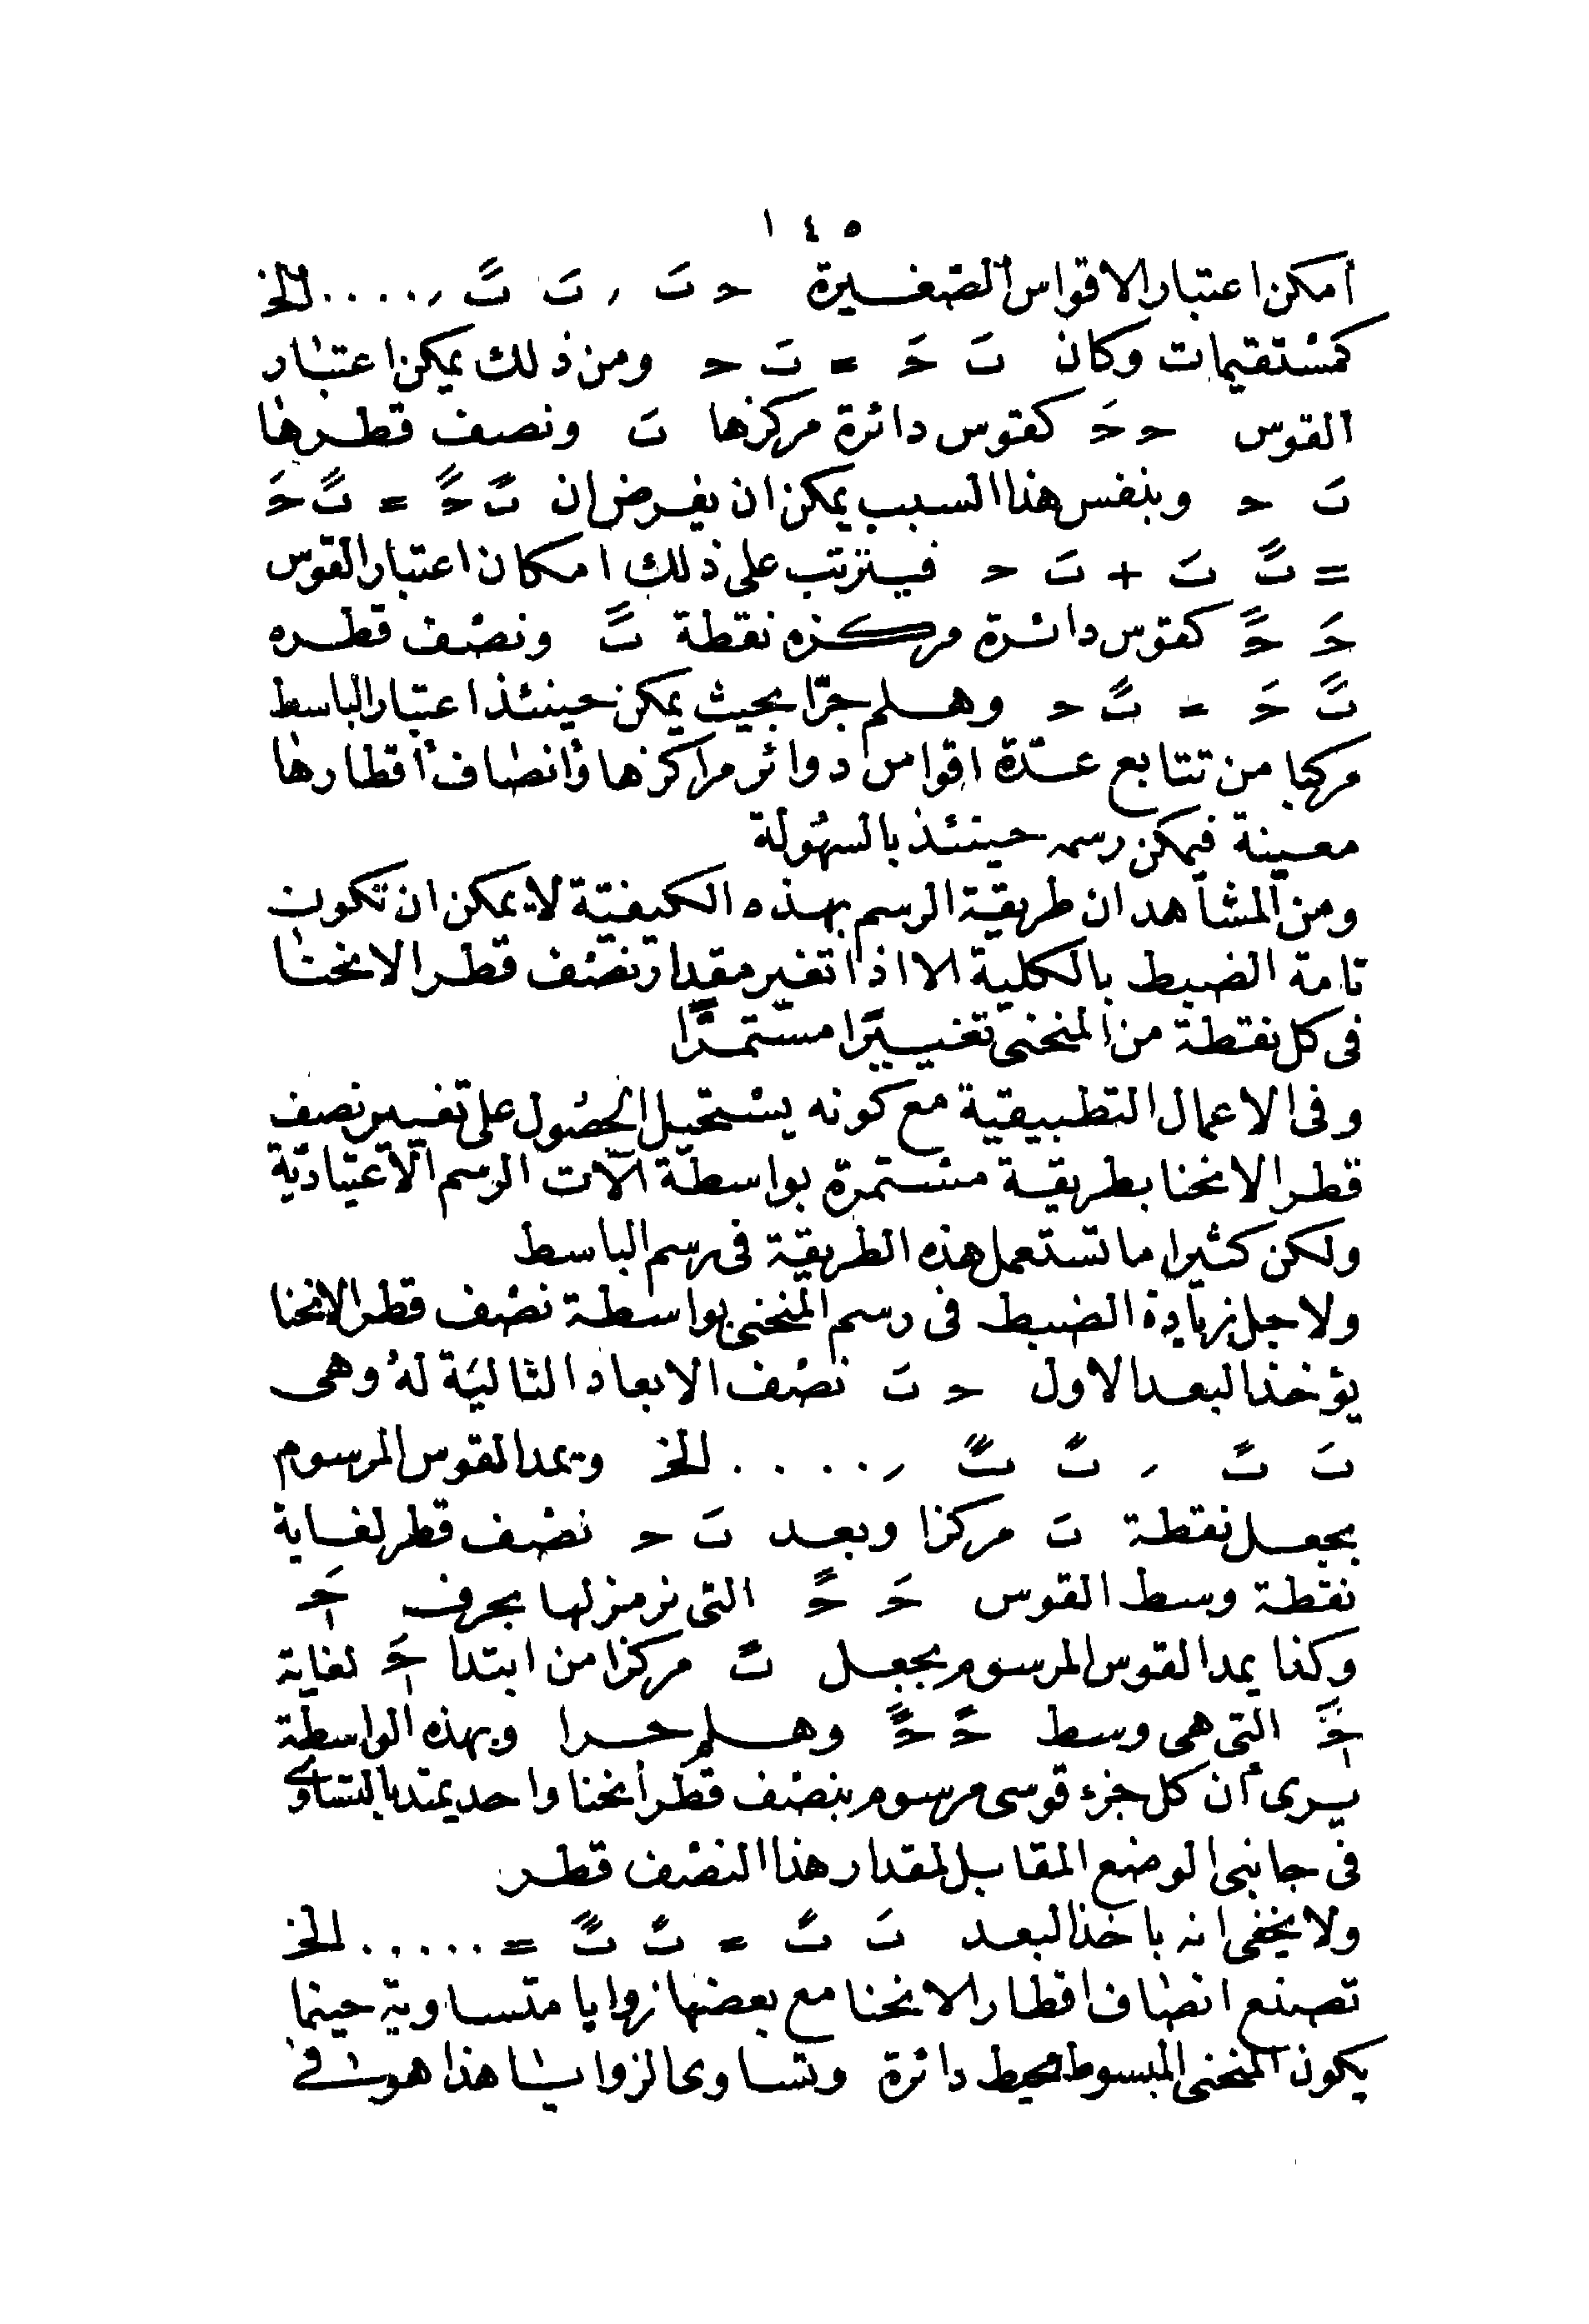 ١٤٥
امكن اعتبار الاقواس الصغيرة حـ تَ , تَ تً ,.....الخ
كمستقيمات وكان تَ حَـ = تَ حـ ومن ذلك يمكن اعتبار
القوس حـ حَـ كقوس دائرة مركزها تَ ونصف قطرها
تَ حـ وبنفس هذا السبب يمكن ان يفرض ان تً حً = تً حَـ
= تً تَ + تَ حـ فيترتب على ذلك امكان اعتبار القوس
حَـ حً كقوس دائرة مركزه نقطة تً ونصف قطره
تً حَـ = تً حـ وهلم جرّا بحيث يمكن حينئذ اعتبار الباسط
مركبا من تتابع عدّة اقواس دوائر مراكزها وأنصاف أقطارها
معينة فيمكن رسمه حينئذ بالسهولة
ومن المشاهد ان طريقة الرسم بهذه الكيفيّة لا يمكن ان تكون
تامة الضبط بالكلية الا اذا تغير مقدار نصف قطر الانحنا
فى كل نقطة من المنحنى تغييرًا مستمرًّا
وفى الاعمال التطبيقية مع كونه يستحيل الحصول على تغيير نصف
قطر الانحنا بطريقة مستمرة بواسطة آلات الرسم الاعتيادية
ولكن كثيرا ما تستعمل هذه الطريقة فى رسم الباسط
ولاجل زيادة الضبط فى رسم المنحنى بواسطة نصف قطر الانحنا
يؤخذ البعد الاول حـ تَ نصف الابعاد التالية له وهى
تَ تً , تً تً ,..... الخ ويمد القوس المرسوم
بجعل نقطة تَ مركزا وبعد تَ حـ نصف قطر لغاية
نقطة وسط القوس حَـ حً التى نرمز لها بحرف حَـ
وكذا يمد القوس المرسوم بجعل تً مركزا من ابتدا حَـ لغاية
حً التى هى وسط حً حً وهلم جرا وبهذه الواسطة
يرى أن كل جزء قوسى مرسوم بنصف قطر أنحنا واحد يمتد بالتساوى
فى جانبى الوضع المقابل لمقدار هذا النصف قطر
ولا يخفى انه باخذ البعد تَ تً = تً تً =..... الخ
تصنع انصاف اقطار الانحنا مع بعضها زوايا متساوية حينما
يكون المنحنى المبسوط محيط دائرة وتساوى الزوايا هذا هو